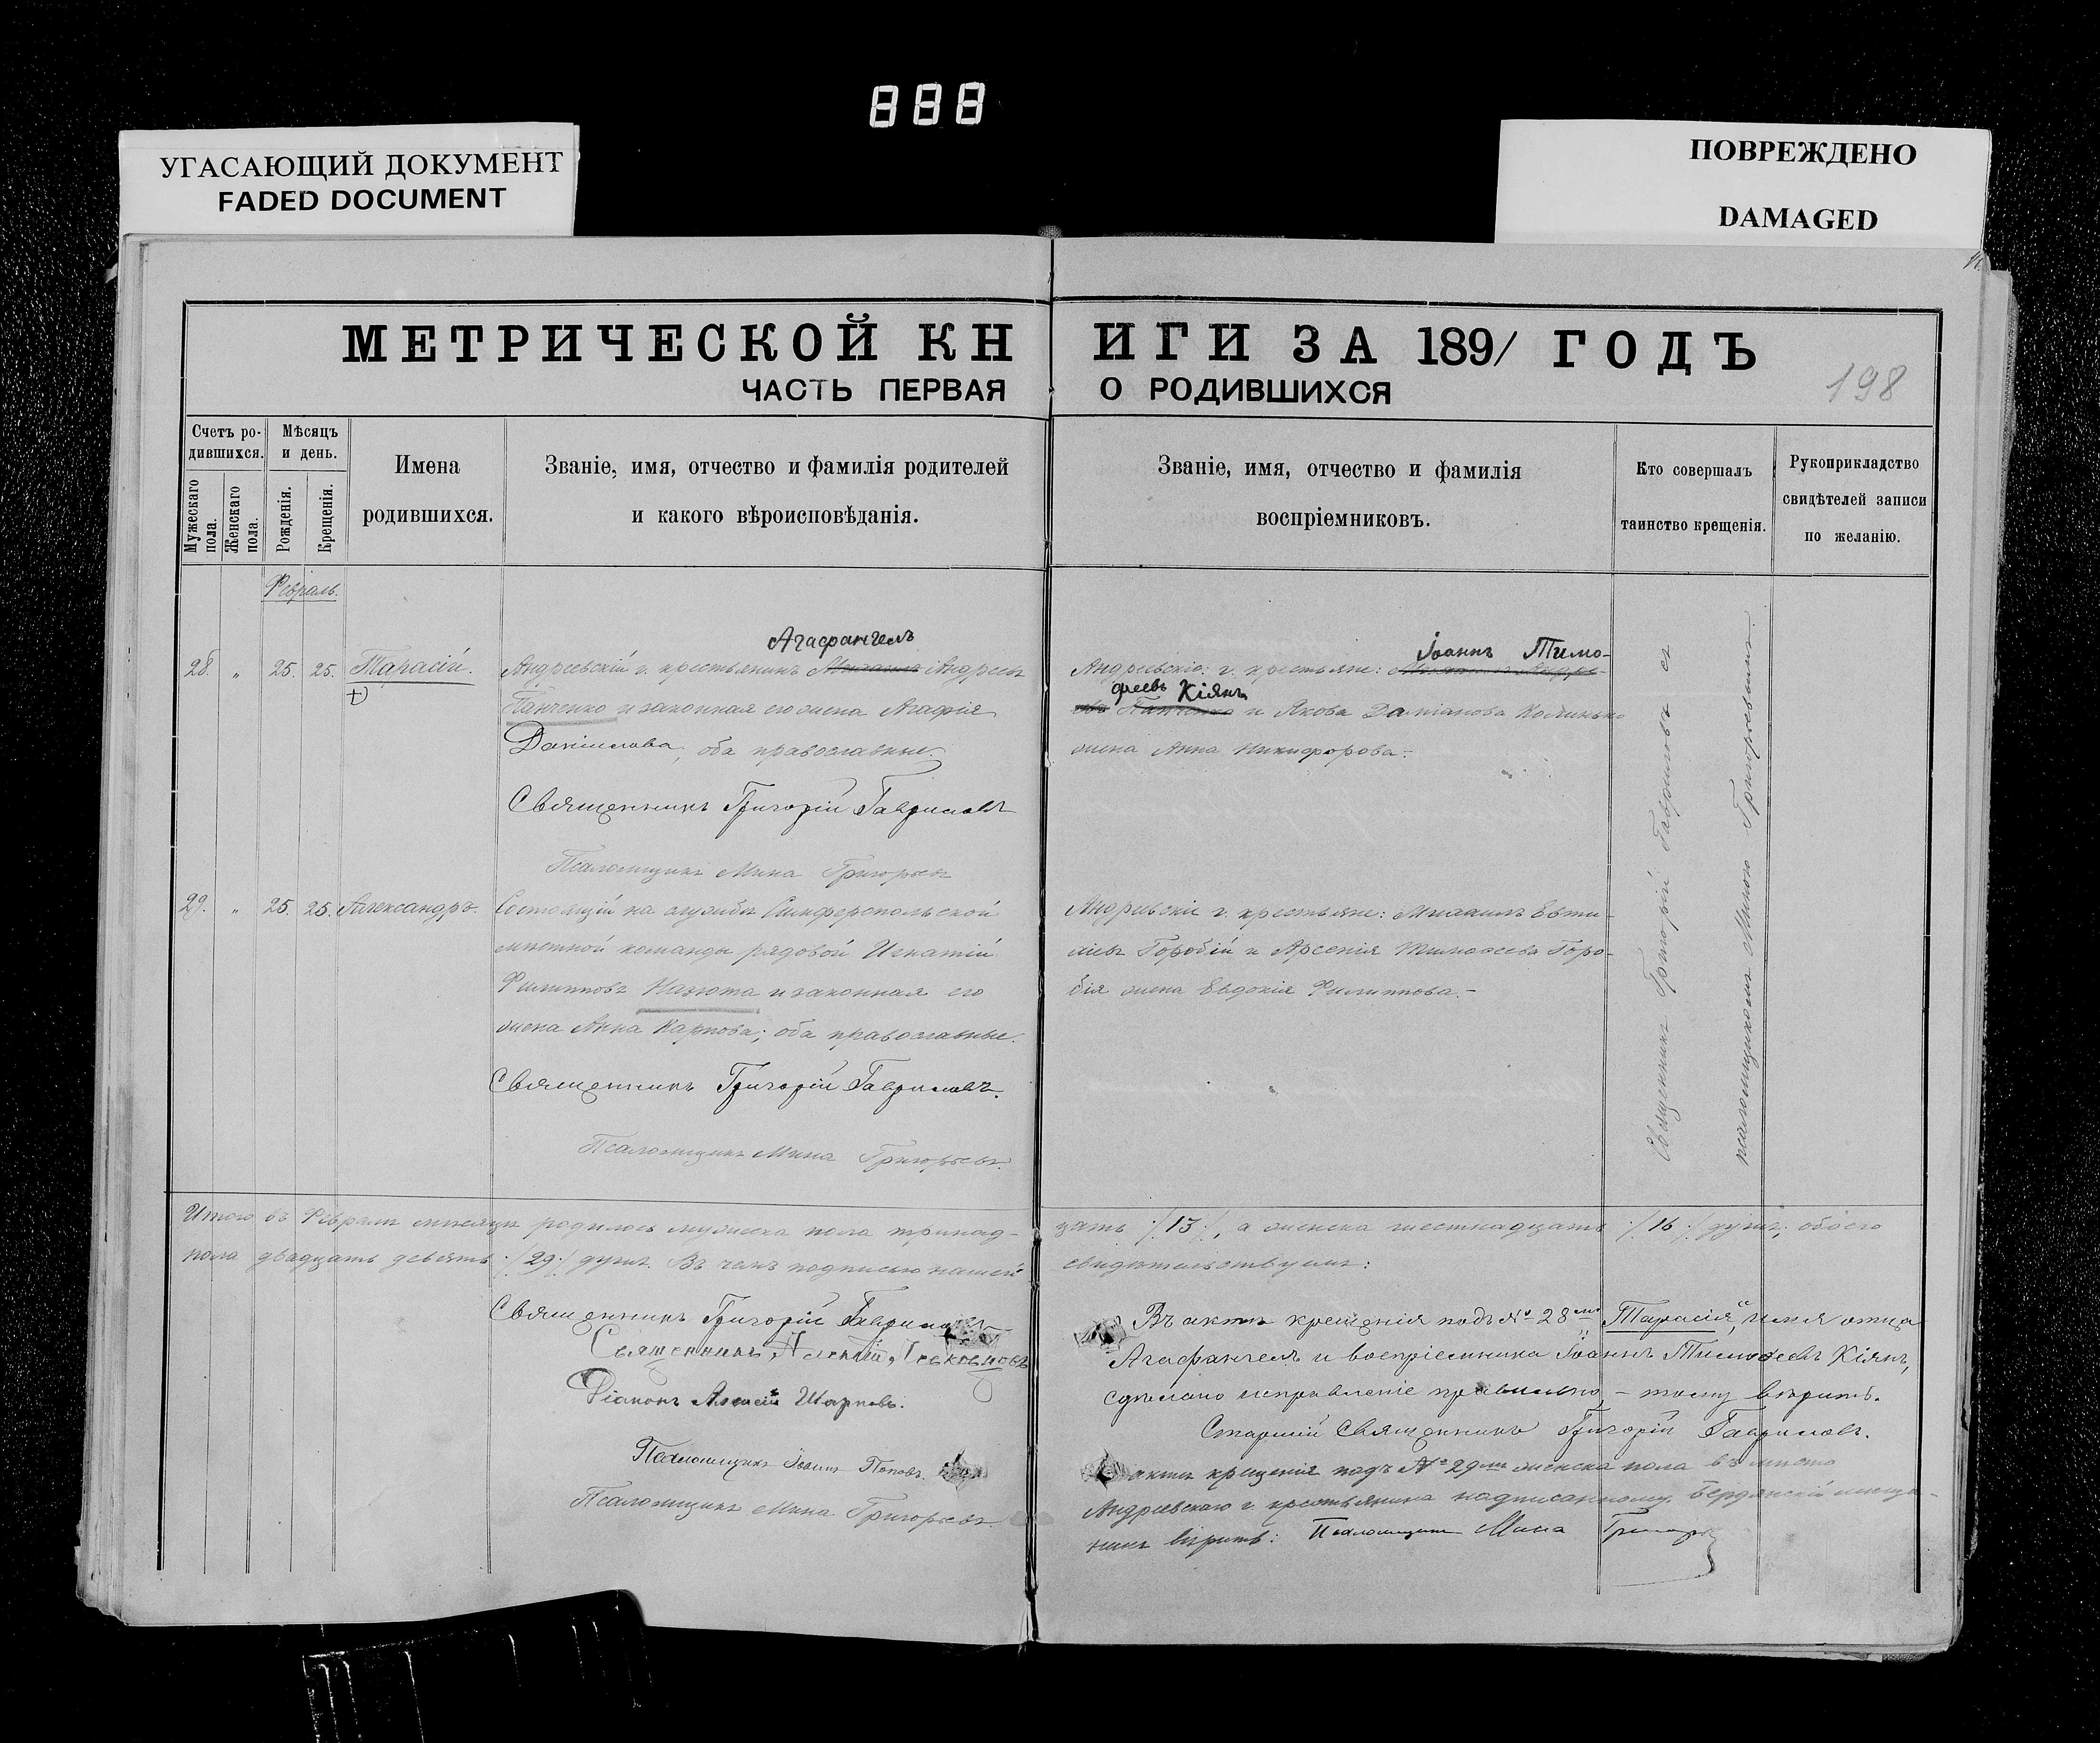 888
УГАСАЮЩИЙ ДОКУМЕНТ
FADED DOCUMENT
ПОВРЕЖДЕНО
DAMAGED
МЕТРИЧЕСКОЙ КНИГИ ЗА 1891 ГОДЪ
198
ЧАСТЬ ПЕРВАЯ О РОДИВШИХСЯ
Счетъ ро-
дившихся.
Мужескаго пола.
Женскаго пола.
Мѣсяцъ
и день.
Рожденія.
Крещенія.
Имена
родившихся.
Званіе, имя, отчество и фамилія родителей
и какого вѣроисповѣданія.
Званіе, имя, отчество и фамилія
воспріемниковъ.
Кто совершалъ
таинство крещенія.
Рукоприкладство
свидѣтелей записи
по желанію.
Февраль.
28. " 25. 25. Тарасій.
Агафангелъ
Андреевскій г. крестьянинъ Андреевъ
Панченко и законная его жена Агафія
Даніилова, оба православные.
Священникъ Григорій Гавриловъ
Псаломщикъ Мина Григорьевъ
Іоаннъ Тимо-
Андреевскіе: г. крестьяне:
феевъ Кіянъ
Панченко и Якова Даміанова
жена Анна Никифорова.-
29. " 25. 25. Александръ.
Состоящій на службѣ Симферопольской
мѣстной команды рядовой Игнатій
Филипповъ Назюта и законная его
жена Анна Карпова; оба православные.
Священникъ Григорій Гавриловъ.
Псаломщикъ Мина Григорьевъ.
Андреевскіе г. крестьяне: Михаилъ Евти-
Горобій и Арсенія Тимофеева Горо-
бія жена Евдокія Филиппова.-
Священникъ Григорій Гавриловъ съ
псаломщикомъ Миною Григорьевымъ.
Итого въ Февралѣ мѣсяцѣ родилось мужеска пола тринад-
цать /13/, а женска шестнадцать /16/ душъ, обоего
пола двадцать девять /29/ душъ. Въ чемъ подписью нашей
свидѣтельствуемъ:
Священникъ Григорій Гавриловъ
Священникъ
Діаконъ Алексій
Псаломщикъ Іоаннъ Поповъ
Псаломщикъ Мина Григорьевъ.
Въ актѣ крещенія подъ № 28мъ "Тарасія", имя отца
Агафангелъ и воспріемника Іоаннъ Тимофеевъ Кіянъ,
сдѣлано исправленіе правильно, - тому вѣрить.
Старшій Священникъ Григорій Гавриловъ.
актѣ крещенія подъ № 29мъ женска пола вмѣсто
Андреевскаго г. крестьянина надписанному Бердянскій мѣща-
нинъ вѣрить: Псаломщикъ Мина Григорьевъ